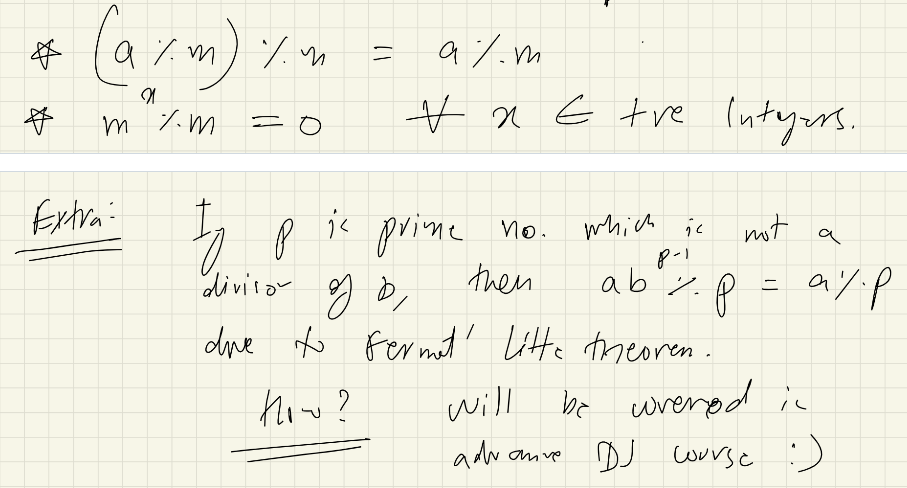 * (a % m) % m = a % m
* m^x % m = 0 ∀ x ∈ +ve Integers.
Extra: If p is prime no. which is not a
divisor of b, then ab^p-1 % p = a % p
due to Fermat' little theorem.
How? will be covered in
advance DS course :)